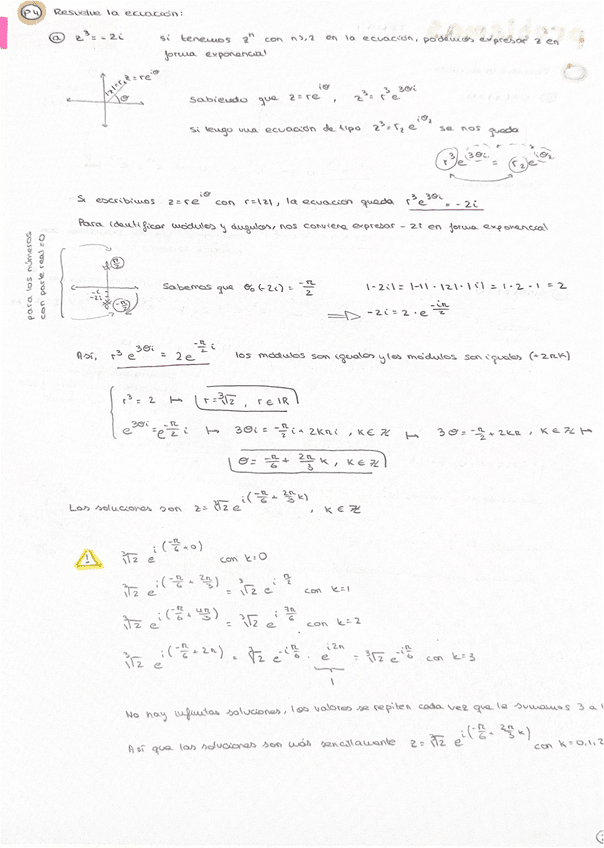 P4 Resuelve la ecuación:
a) z³ = -2i si tenemos zⁿ con n≥2 en la ecuación, podemos expresar z en
forma exponencial
|z|=r z=re^{iθ}
θ
Sabiendo que z=re^{iθ}, z³=r³e^{3θi}
Si tengo una ecuación de tipo z³=r₂e^{iθ₂} se nos queda
r³e^{i3θ} = r₂e^{iθ₂}
Si escribimos z=re^{iθ} con r=|z|, la ecuación queda r³e^{3θi} = -2i
Para identificar módulos y ángulos, nos conviene expresar -2i en forma exponencial
para los números
con parte real=0
π/2
-i
-2i
-π/2
Sabemos que θ₀(-2i) = -π/2 |-2i| = |-1|·|2|·|i| = 1·2·1 = 2
⟹ -2i = 2·e^{-iπ/2}
Así, r³e^{3θi} = 2e^{-π/2 i} los módulos son iguales y los módulos son iguales (+2πk)
r³=2 ↦ r=∛2, r∈ℝ
e^{3θi} = e^{-π/2 i} ↦ 3θi = -π/2 i + 2kπi, k∈ℤ ↦ 3θ = -π/2 + 2kπ, k∈ℤ ↦
θ = -π/6 + 2π/3 k, k∈ℤ
Las soluciones son z=∛2 e^{i(-π/6 + 2π/3 k)}, k∈ℤ
! ∛2 e^{i(-π/6+0)} con k=0
∛2 e^{i(-π/6 + 2π/3)} = ∛2 e^{iπ/2} con k=1
∛2 e^{i(-π/6 + 4π/3)} = ∛2 e^{i7π/6} con k=2
∛2 e^{i(-π/6 + 2π)} = ∛2 e^{-iπ/6} · e^{i2π} = ∛2 e^{-iπ/6} con k=3
1
No hay infinitas soluciones, los valores se repiten cada vez que le sumamos 3 a
Así que las soluciones son más sencillamente z=∛2 e^{i(-π/6 + 2π/3 k)} con k=0,1,2